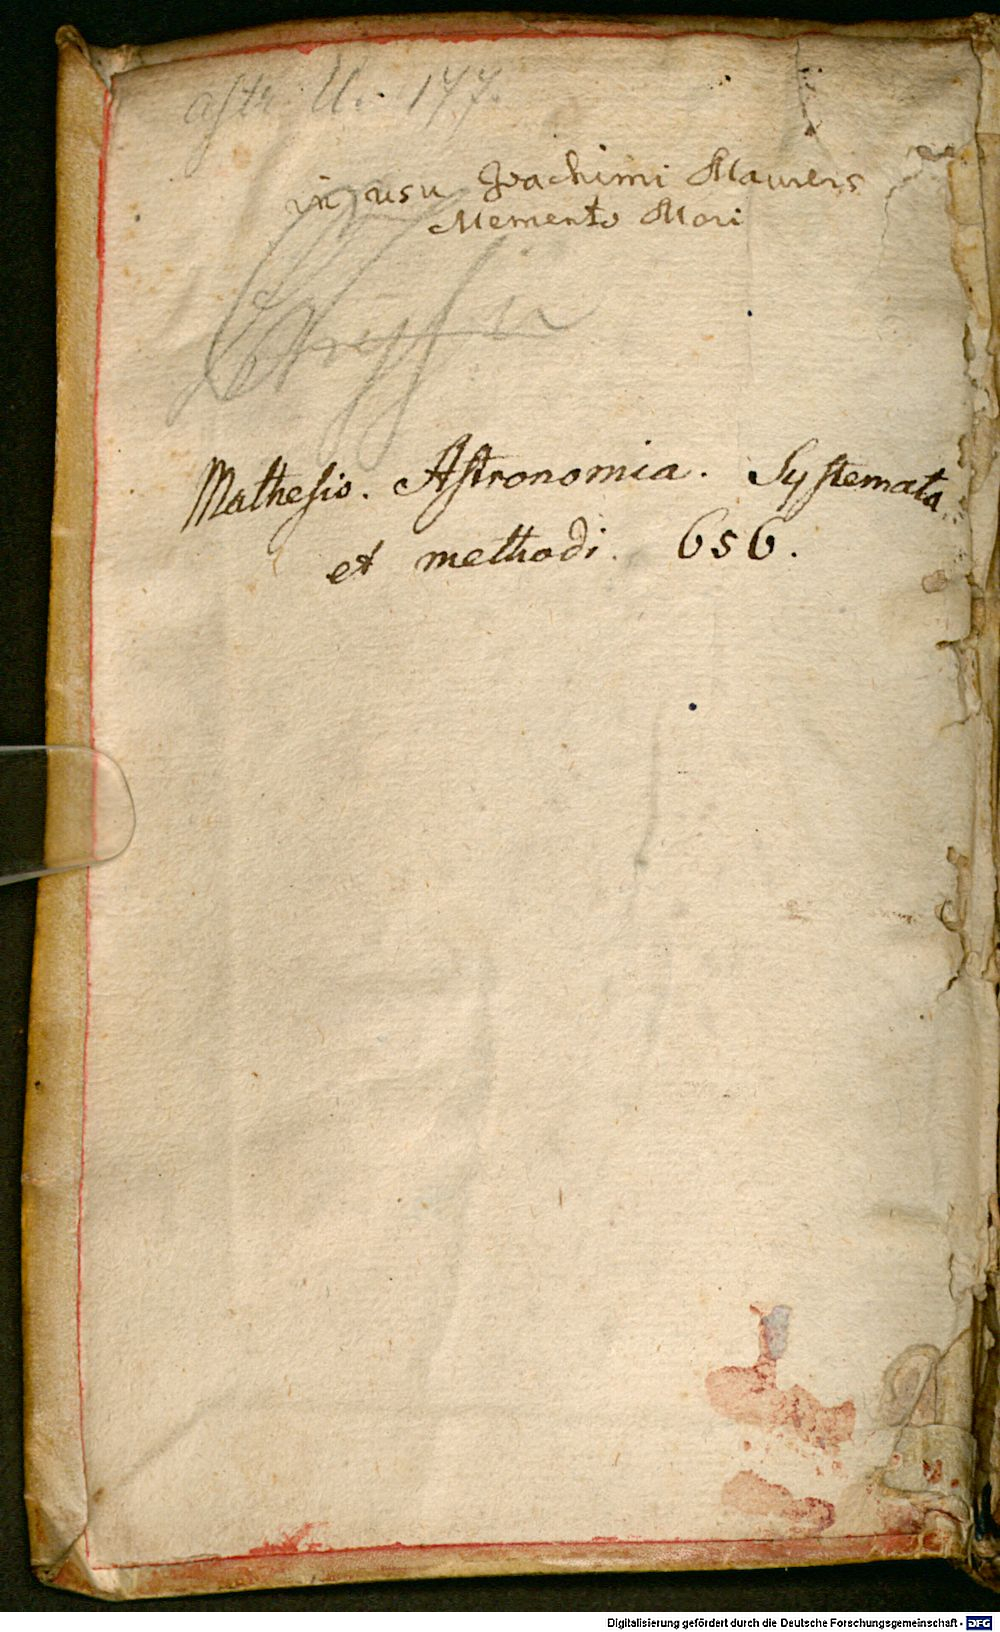 astr. U. 177.
in usu Joachimi Maurers
Memento Mori
Mathesis. Astronomia. Systemata
et methodi. 656.
Digitalisierung gefördert durch die Deutsche Forschungsgemeinschaft - DFG